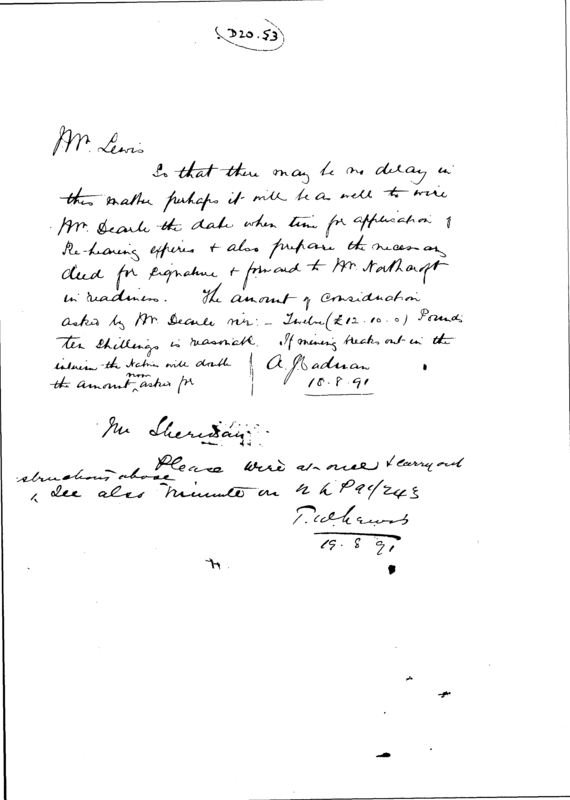 D20.53
Mr. Lewis
So that there may be no delay in
this matter perhaps it will be as well to wire
Mr. Dearle the date when time for application of
Re-hearing expires & also prepare the necessary
deed for signature & forward to Mr Northcroft
in readiness. The amount of consideration
asked by Mr Dearle viz: - Twelve (£12.10.0) Pounds
ten shillings is reasonable. If mining breaks out in the
interim the Native will double
the amount now asked for
A. J. Cadman
18.8.91
Mr Sheridan
Please wire at once & carry out
structions above
See also minute on N L P 91/243
T. W. Lewis
19.8.91